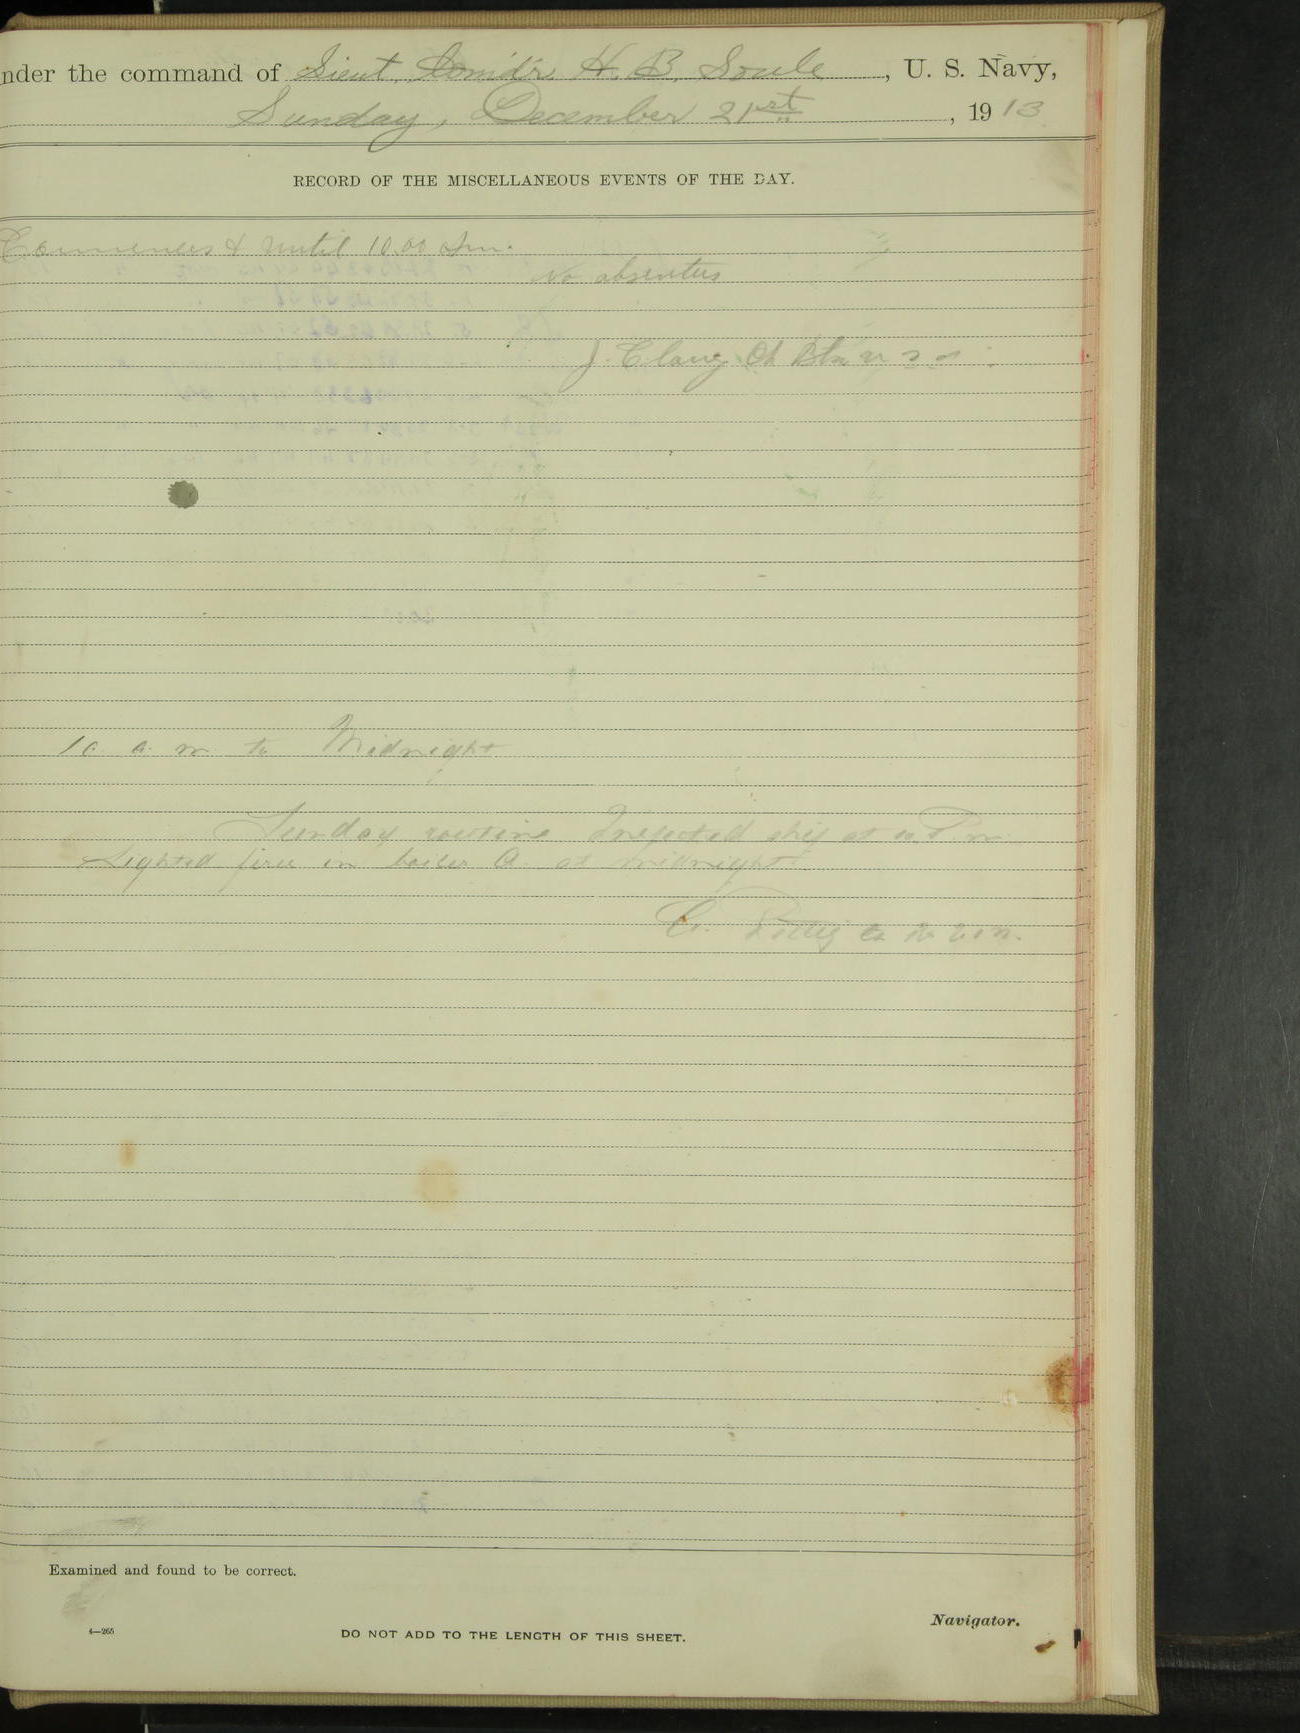 nder the command of Lieut. Comd'r H. B. Soule, U. S. Navy,
Sunday, December 21st, 1913
RECORD OF THE MISCELLANEOUS EVENTS OF THE DAY.
Commences & until 10.00 am.
No absentees
J. Clancy Ch Btsn U.S.N.
10 a. m. to Midnight
Sunday routine Inspected ship at P.m.
Lighted fires in boiler A. at midnight.
C.
Examined and found to be correct.
Navigator.
4—265
DO NOT ADD TO THE LENGTH OF THIS SHEET.